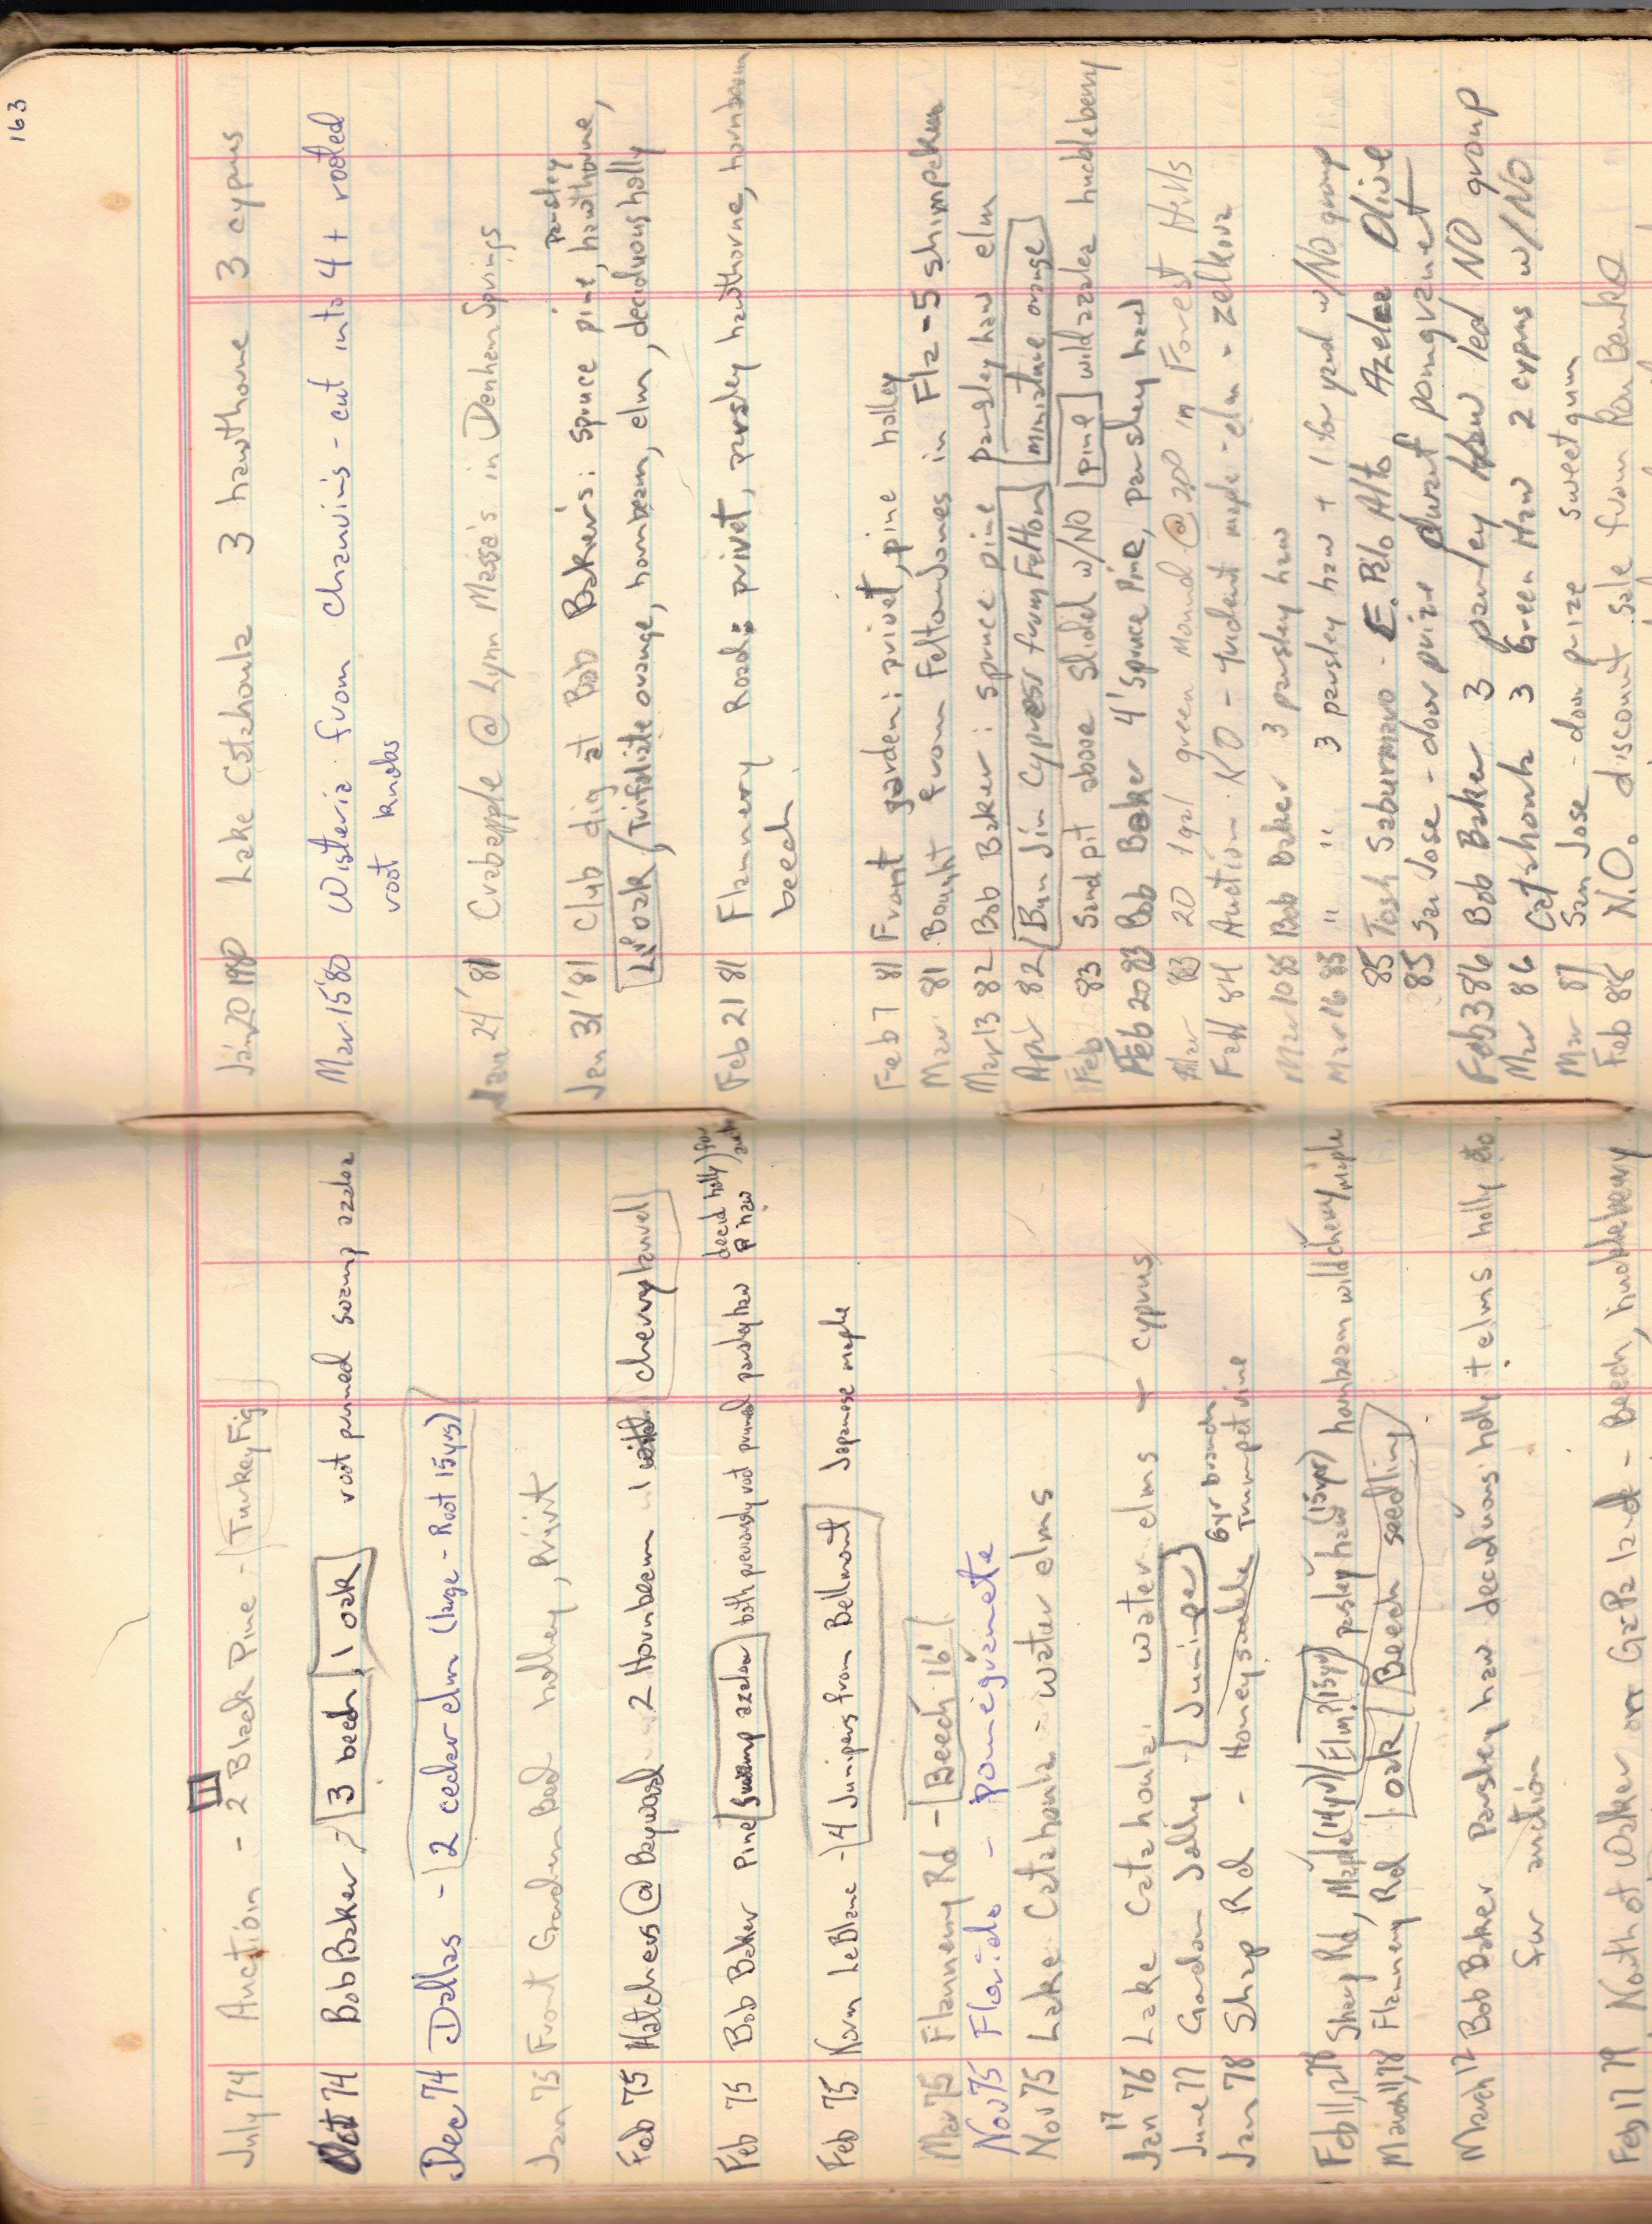 July 74 Auction - 2 Black Pine - Turkey Fig
Oct 74 Bob Baker - 3 beech, 1 oak root pruned swamp azalea
Dec 74 Dallas - 2 cedar elm (large - Root 15yrs)
Jan 75 Front Garden Bed holley, Privit
Feb 75 Hatchers @ Baywood 2 Hornbeam 1 cherry laurel
decid holly) for
Feb 75 Bob Baker Pine swamp azalea both previously root pruned parsley haw P haw
Feb 75 Norm LeBlanc - 4 Junipers from Bellmont Japanese maple
Mar 75 Flannery Rd - Beech 16'
Nov 75 Florida - pomegranete
Nov 75 Lake Catahoula - water elms
Jan 17 76 Lake Catahoula water elms + cyprus
June 77 Gordon Jolly - Juniper
6yr branch
Jan 78 Shap Rd - Honeysuckle Trumpet vine
Feb 11,12 78 Sharp Rd, Maple (14yr) Elm? (15yr) parsley haw (15yrs) hornbeam wild cherry/maple
March 11, 78 Flannery Rd oak Beech seedling
March 12 Bob Baker Parsley haw deciduous holly + elms holly etc
for auction
Feb 17 79 North of Walker on Ga Pa land - Beech, huckleberry
163
Jan 20 1980 Lake Catahoula 3 hawthorne 3 cyprus
Mar 15 '80 Wisteria from Chauvin's - cut into 4 + rooted
root knobs
Jan 24 '81 Crabapple @ Lynn Massa's in Denham Springs
parsley
Jan 31 '81 Club dig at Bob Baker's: spruce pine, hawthorne,
Live oak, Trifoliate orange, hornbeam, elm, deciduous holly
Feb 21 81 Flannery Road: privet, parsley hawthorne, hornbeam
beech.
Feb 7 81 Front garden: privet, pine holley
Mar 81 Bought from Felton Jones in Fla - 5 shimpaku
Mar 13 82 Bob Baker: spruce pine parsley haw elm
Apr 82 Bun Jin Cypress from Felton miniature orange
Feb 83 Sand pit above Slidel w/NO pine wild azalea huckleberry
Feb 20 83 Bob Baker 4' Spruce Pine, parsley haw
Mar 83 20 1 gal green mound @ 2.00 in Forest Hills
Fall 84 Auction NO - trident maple - elm - zelkova
Mar 10 85 Bob Baker 3 parsley haw
Mar 16 85 " " 3 parsley haw + 1 for yard w/NO group
85 Tosh Saburmaro - E. Palo Alto, Azelea Olive
85 San Jose - door prize dwarf pomgranet
Feb 3 86 Bob Baker 3 parsley Haw led NO group
Mar 86 Catahoula 3 Green Haw 2 cyprus w/NO
Mar 87 San Jose - door prize sweetgum
Feb 88 N.O. discount sale from Ron Benko